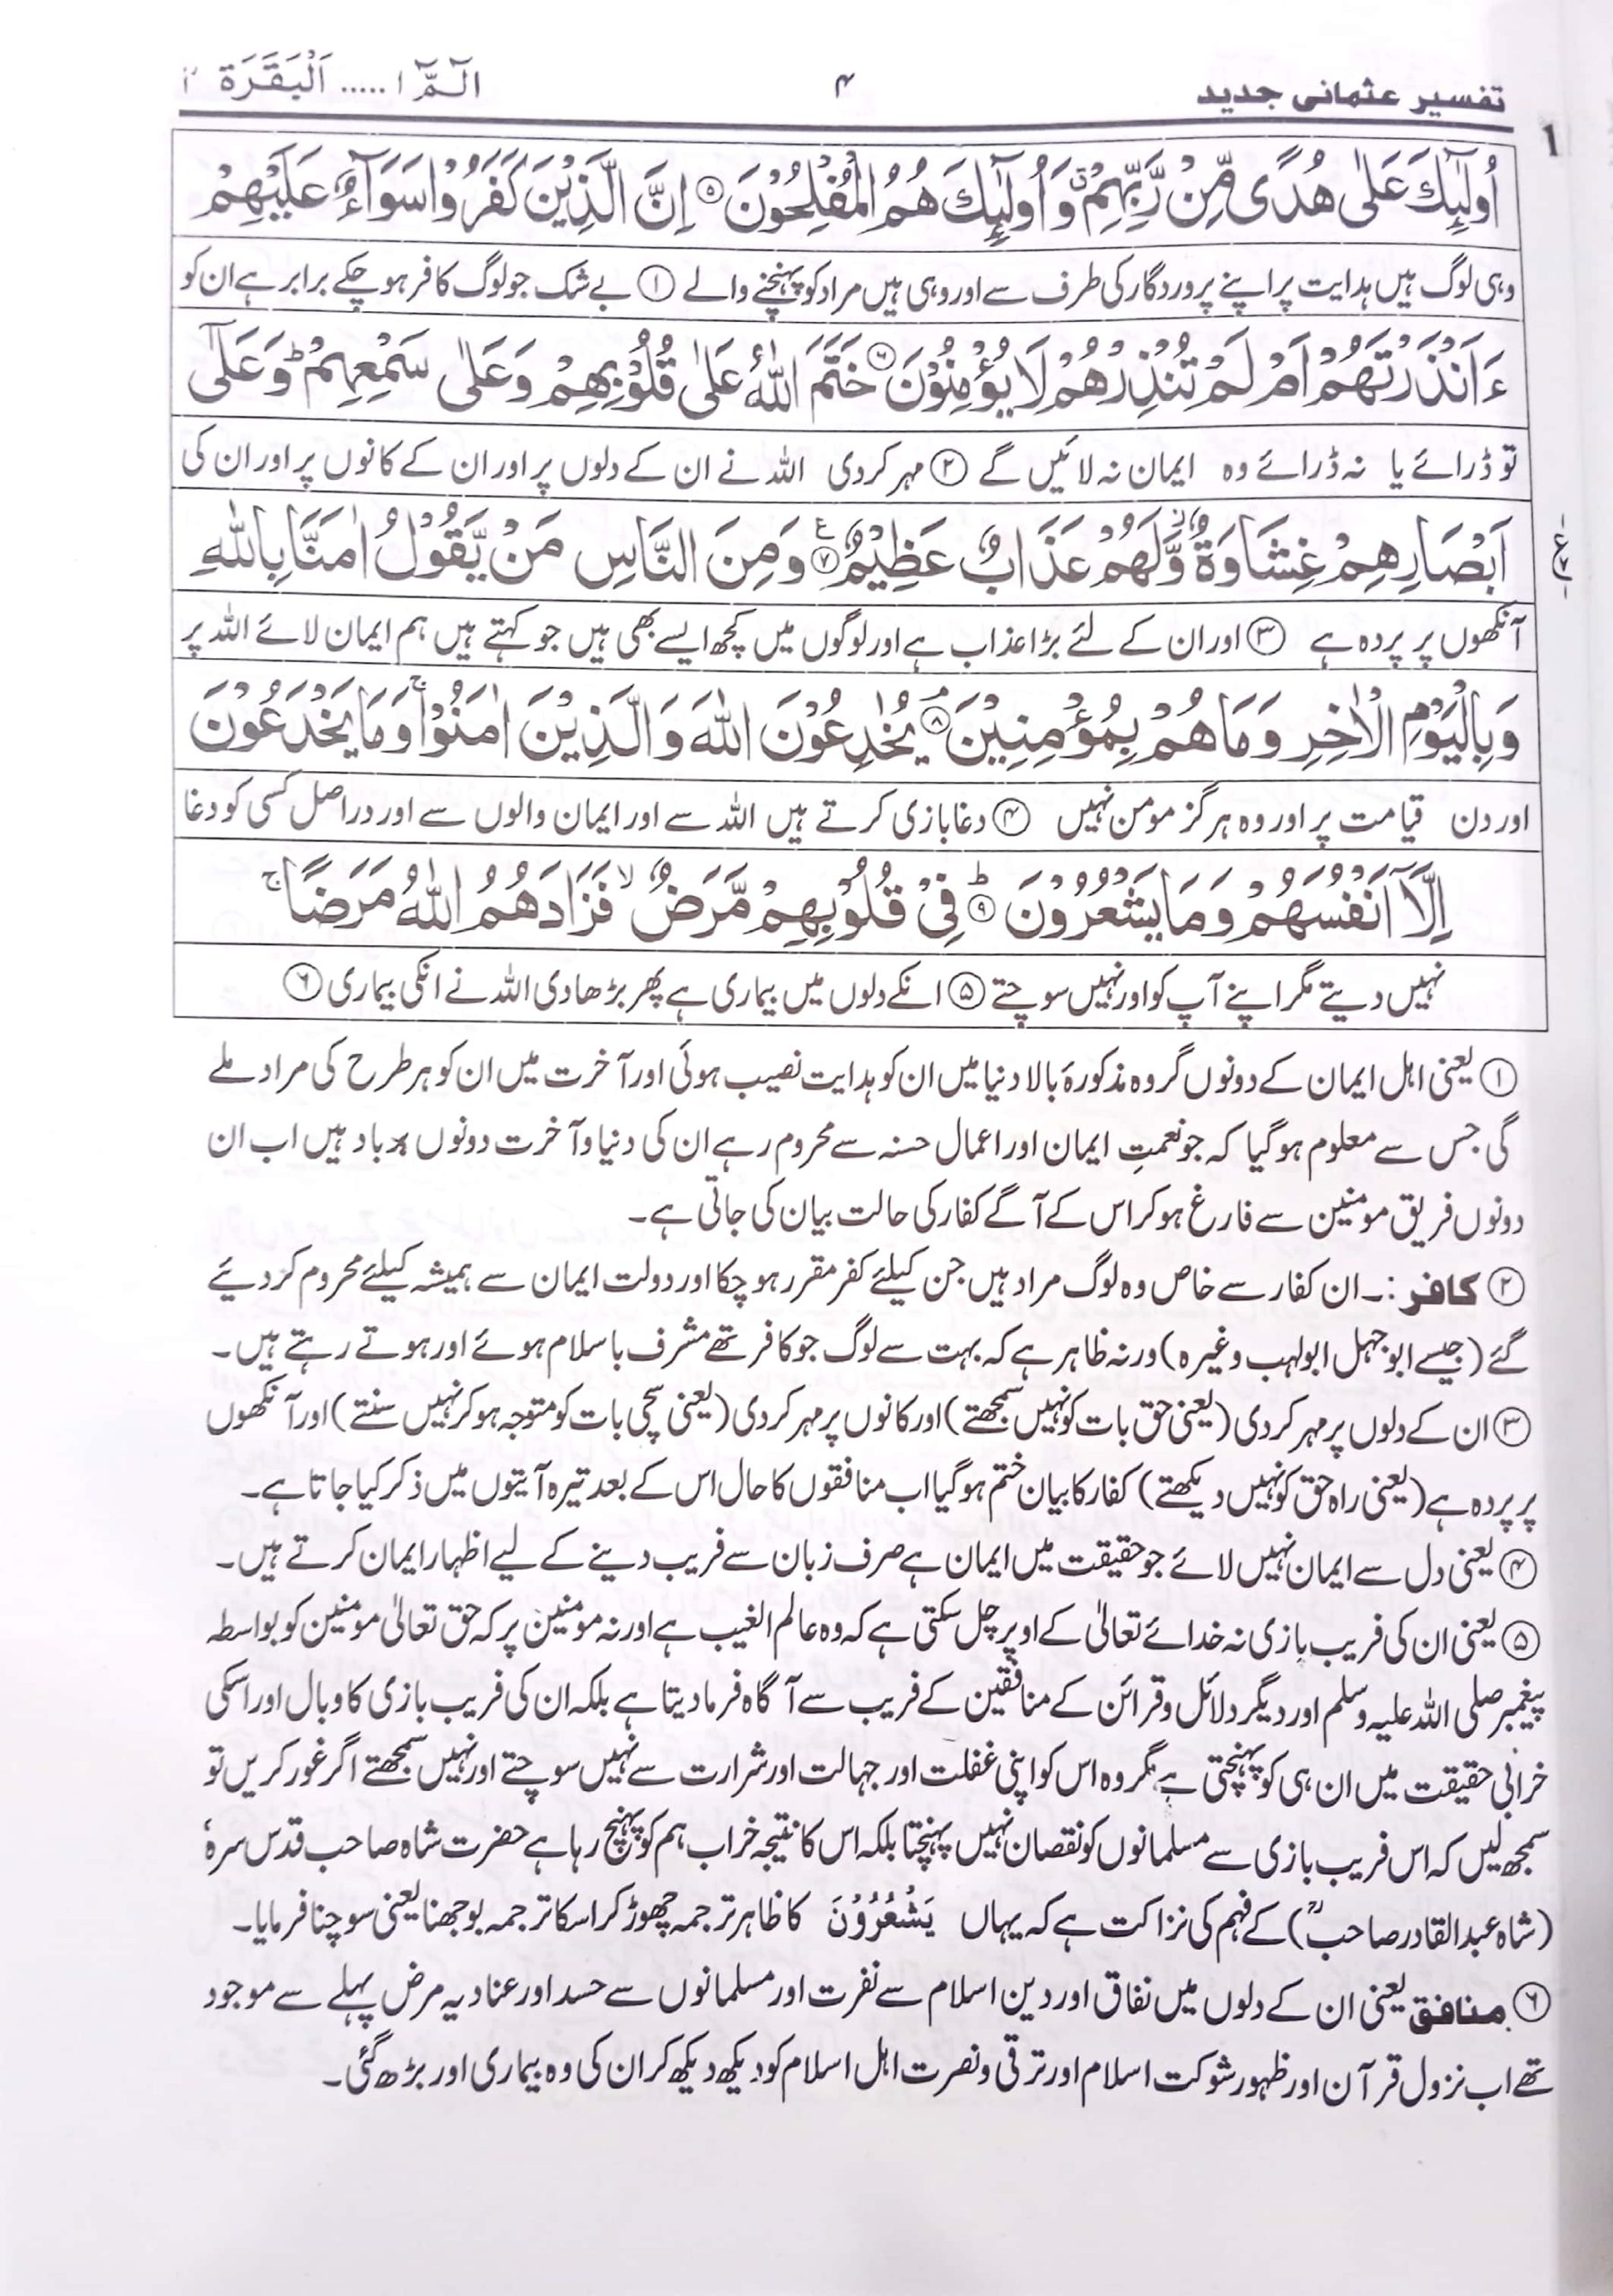 تفسیر عثمانی جدید ۴ الٓمّٓ ۱ ..... اَلْبَقَرَة ۲
1
اُولٰٓئِكَ عَلٰی هُدًی مِّنْ رَّبِّهِمْ ۗ وَاُولٰٓئِكَ هُمُ الْمُفْلِحُوْنَ ۝۵ اِنَّ الَّذِیْنَ كَفَرُوْا سَوَآءٌ عَلَیْهِمْ
وہی لوگ ہیں ہدایت پر اپنے پروردگار کی طرف سے اور وہی ہیں مراد کو پہنچنے والے ① بے شک جو لوگ کافر ہو چکے برابر ہے ان کو
ءَاَنْذَرْتَهُمْ اَمْ لَمْ تُنْذِرْهُمْ لَا یُؤْمِنُوْنَ ۝۶ خَتَمَ اللّٰهُ عَلٰی قُلُوْبِهِمْ وَعَلٰی سَمْعِهِمْ ؕ وَعَلٰٓی
تو ڈرائے یا نہ ڈرائے وہ ایمان نہ لائیں گے ② مہر کر دی اللہ نے ان کے دلوں پر اور ان کے کانوں پر اور ان کی
اَبْصَارِهِمْ غِشَاوَةٌ ۫ وَّلَهُمْ عَذَابٌ عَظِیْمٌ ۝۷ ع وَمِنَ النَّاسِ مَنْ یَّقُوْلُ اٰمَنَّا بِاللّٰهِ
آنکھوں پر پردہ ہے ③ اور ان کے لئے بڑا عذاب ہے اور لوگوں میں کچھ ایسے بھی ہیں جو کہتے ہیں ہم ایمان لائے اللہ پر
وَبِالْیَوْمِ الْاٰخِرِ وَمَا هُمْ بِمُؤْمِنِیْنَ ۝۸ۘ یُخٰدِعُوْنَ اللّٰهَ وَالَّذِیْنَ اٰمَنُوْا ۚ وَمَا یَخْدَعُوْنَ
اور دن قیامت پر اور وہ ہرگز مومن نہیں ④ دغا بازی کرتے ہیں اللہ سے اور ایمان والوں سے اور دراصل کسی کو دغا
اِلَّآ اَنْفُسَهُمْ وَمَا یَشْعُرُوْنَ ؕ۝۹ فِیْ قُلُوْبِهِمْ مَّرَضٌ ۙ فَزَادَهُمُ اللّٰهُ مَرَضًا ۚ
نہیں دیتے مگر اپنے آپ کو اور نہیں سوچتے ⑤ انکے دلوں میں بیماری ہے پھر بڑھا دی اللہ نے انکی بیماری ⑥
① یعنی اہل ایمان کے دونوں گروہ مذکورۂ بالا دنیا میں ان کو ہدایت نصیب ہوئی اور آخرت میں ان کو ہر طرح کی مراد ملے
گی جس سے معلوم ہو گیا کہ جو نعمتِ ایمان اور اعمال حسنہ سے محروم رہے ان کی دنیا و آخرت دونوں برباد ہیں اب ان
دونوں فریق مومنین سے فارغ ہو کر اس کے آگے کفار کی حالت بیان کی جاتی ہے۔
② کافر :۔ ان کفار سے خاص وہ لوگ مراد ہیں جن کیلئے کفر مقرر ہو چکا اور دولت ایمان سے ہمیشہ کیلئے محروم کر دیئے
گئے (جیسے ابوجہل ابولہب وغیرہ) ورنہ ظاہر ہے کہ بہت سے لوگ جو کافر تھے مشرف باسلام ہوئے اور ہوتے رہتے ہیں۔
③ ان کے دلوں پر مہر کر دی (یعنی حق بات کو نہیں سمجھتے) اور کانوں پر مہر کر دی (یعنی سچی بات کو متوجہ ہو کر نہیں سنتے) اور آنکھوں
پر پردہ ہے (یعنی راہ حق کو نہیں دیکھتے) کفار کا بیان ختم ہو گیا اب منافقوں کا حال اس کے بعد تیرہ آیتوں میں ذکر کیا جاتا ہے۔
④ یعنی دل سے ایمان نہیں لائے جو حقیقت میں ایمان ہے صرف زبان سے فریب دینے کے لیے اظہار ایمان کرتے ہیں۔
⑤ یعنی ان کی فریب بازی نہ خدائے تعالیٰ کے اوپر چل سکتی ہے کہ وہ عالم الغیب ہے اور نہ مومنین پر کہ حق تعالیٰ مومنین کو بواسطہ
پیغمبر صلی اللہ علیہ وسلم اور دیگر دلائل و قرائن کے منافقین کے فریب سے آگاہ فرما دیتا ہے بلکہ ان کی فریب بازی کا وبال اور اسکی
خرابی حقیقت میں ان ہی کو پہنچتی ہے مگر وہ اس کو اپنی غفلت اور جہالت اور شرارت سے نہیں سوچتے اور نہیں سمجھتے اگر غور کریں تو
سمجھ لیں کہ اس فریب بازی سے مسلمانوں کو نقصان نہیں پہنچتا بلکہ اس کا نتیجہ خراب ہم کو پہنچ رہا ہے حضرت شاہ صاحب قدس سرہٗ
(شاہ عبدالقادر صاحبؒ) کے فہم کی نزاکت ہے کہ یہاں یَشْعُرُوْنَ کا ظاہر ترجمہ چھوڑ کر اسکا ترجمہ بوجھنا یعنی سوچنا فرمایا۔
⑥ منافق یعنی ان کے دلوں میں نفاق اور دین اسلام سے نفرت اور مسلمانوں سے حسد اور عناد یہ مرض پہلے سے موجود
تھے اب نزول قرآن اور ظہور شوکت اسلام اور ترقی و نصرت اہل اسلام کو دیکھ دیکھ کر ان کی وہ بیماری اور بڑھ گئی۔